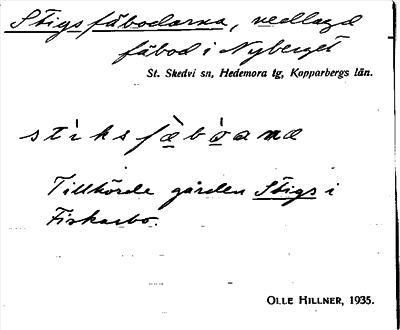 Stigsfäbodarna, nedlagd
fäbod i Nyberget
St. Skedvi sn, Hedemora tg, Kopparbergs län.
Tillhörde gården Stigs i
Fiskarbo.
OLLE HILLNER, 1935.